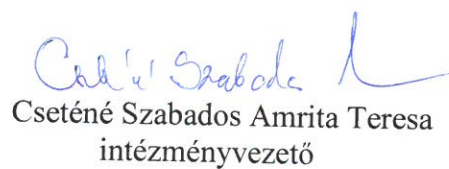 Cseténé Szabados Amrita Teresa
intézményvezető